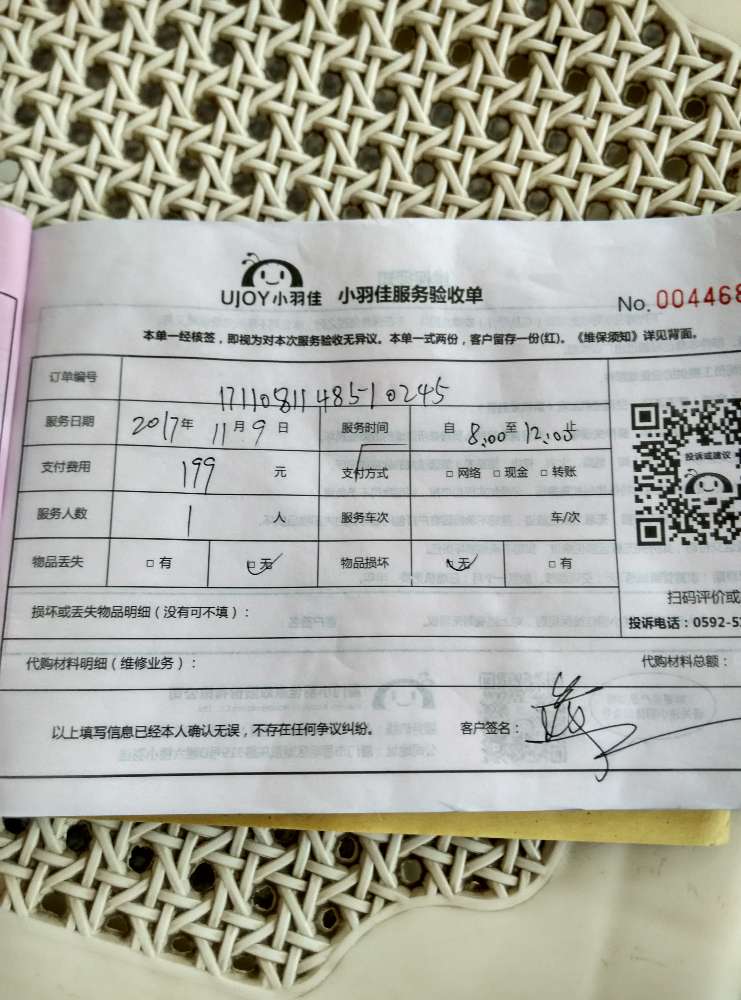 UJOY小羽佳 小羽佳服务验收单
No. 004468
本单一经核签，即视为对本次服务验收无异议。本单一式两份，客户留存一份(红)。《维保须知》详见背面。
订单编号 1711081148510245
服务日期 2017年 11月 9日 服务时间 自 8:00至 12:00止
支付费用 199 元 支付方式 □网络 □现金 □转账
服务人数 1 人 服务车次 车/次
投诉或建议
物品丢失 □有 □无 物品损坏 □无 □有
扫码评价或
损坏或丢失物品明细（没有可不填）：
投诉电话：0592-5
代购材料明细（维修业务）： 代购材料总额：
以上填写信息已经本人确认无误，不存在任何争议纠纷。 客户签名：